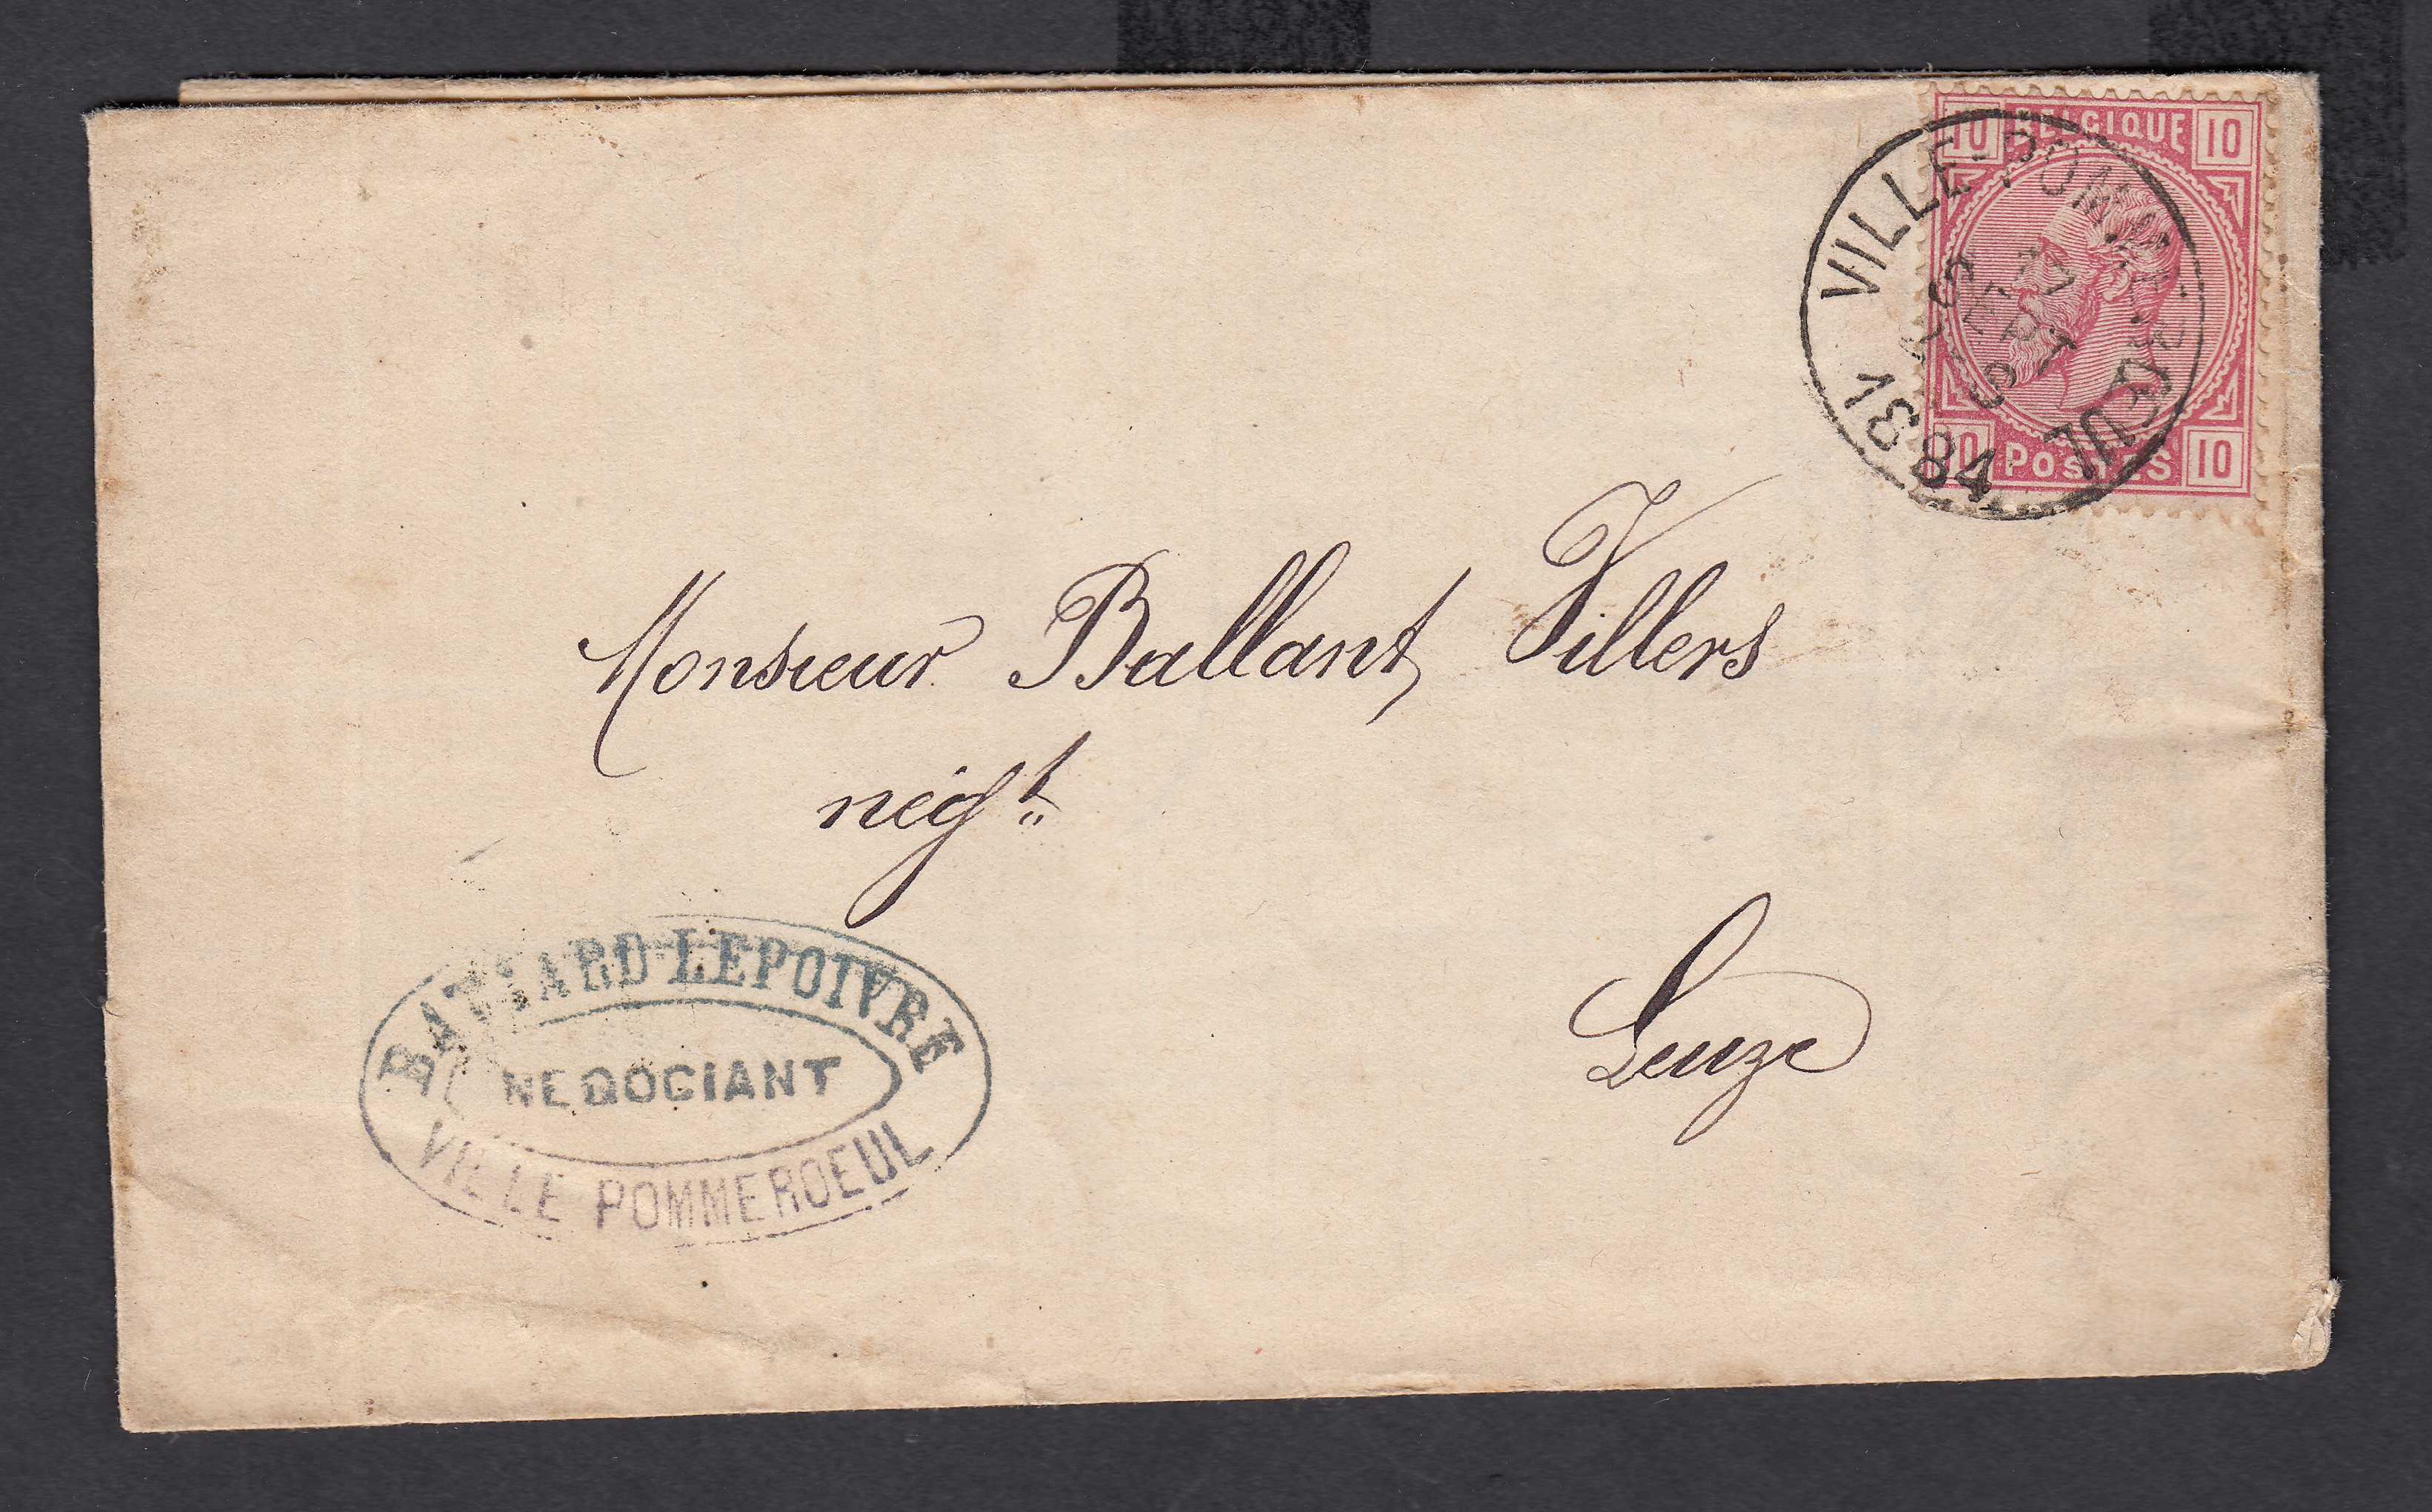 10 BELGIQUE 10
10 POSTES 10
VILLE-POMMERŒUL
SEPT
1884
Monsieur Ballant Villers
négt
Leuze
LEPOIVRE
NEGOCIANT
VILLE POMMEROEUL